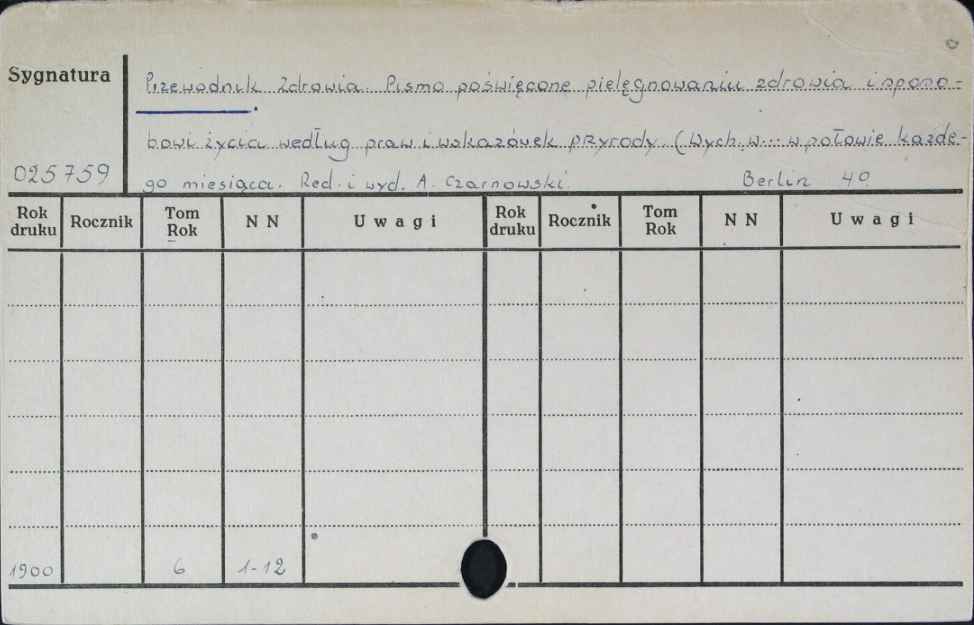 Sygnatura
Przewodnik Zdrowia. Pismo poświęcone pielęgnowaniu zdrowia i sposo-
bowi życia według praw i wskazówek przyrody. (Wych. w... w połowie każde-
025759
go miesiąca. Red. i wyd. A. Czarnowski Berlin 4º
Rok druku Rocznik Tom Rok NN Uwagi Rok druku Rocznik Tom Rok NN Uwagi
1900 6 1-12